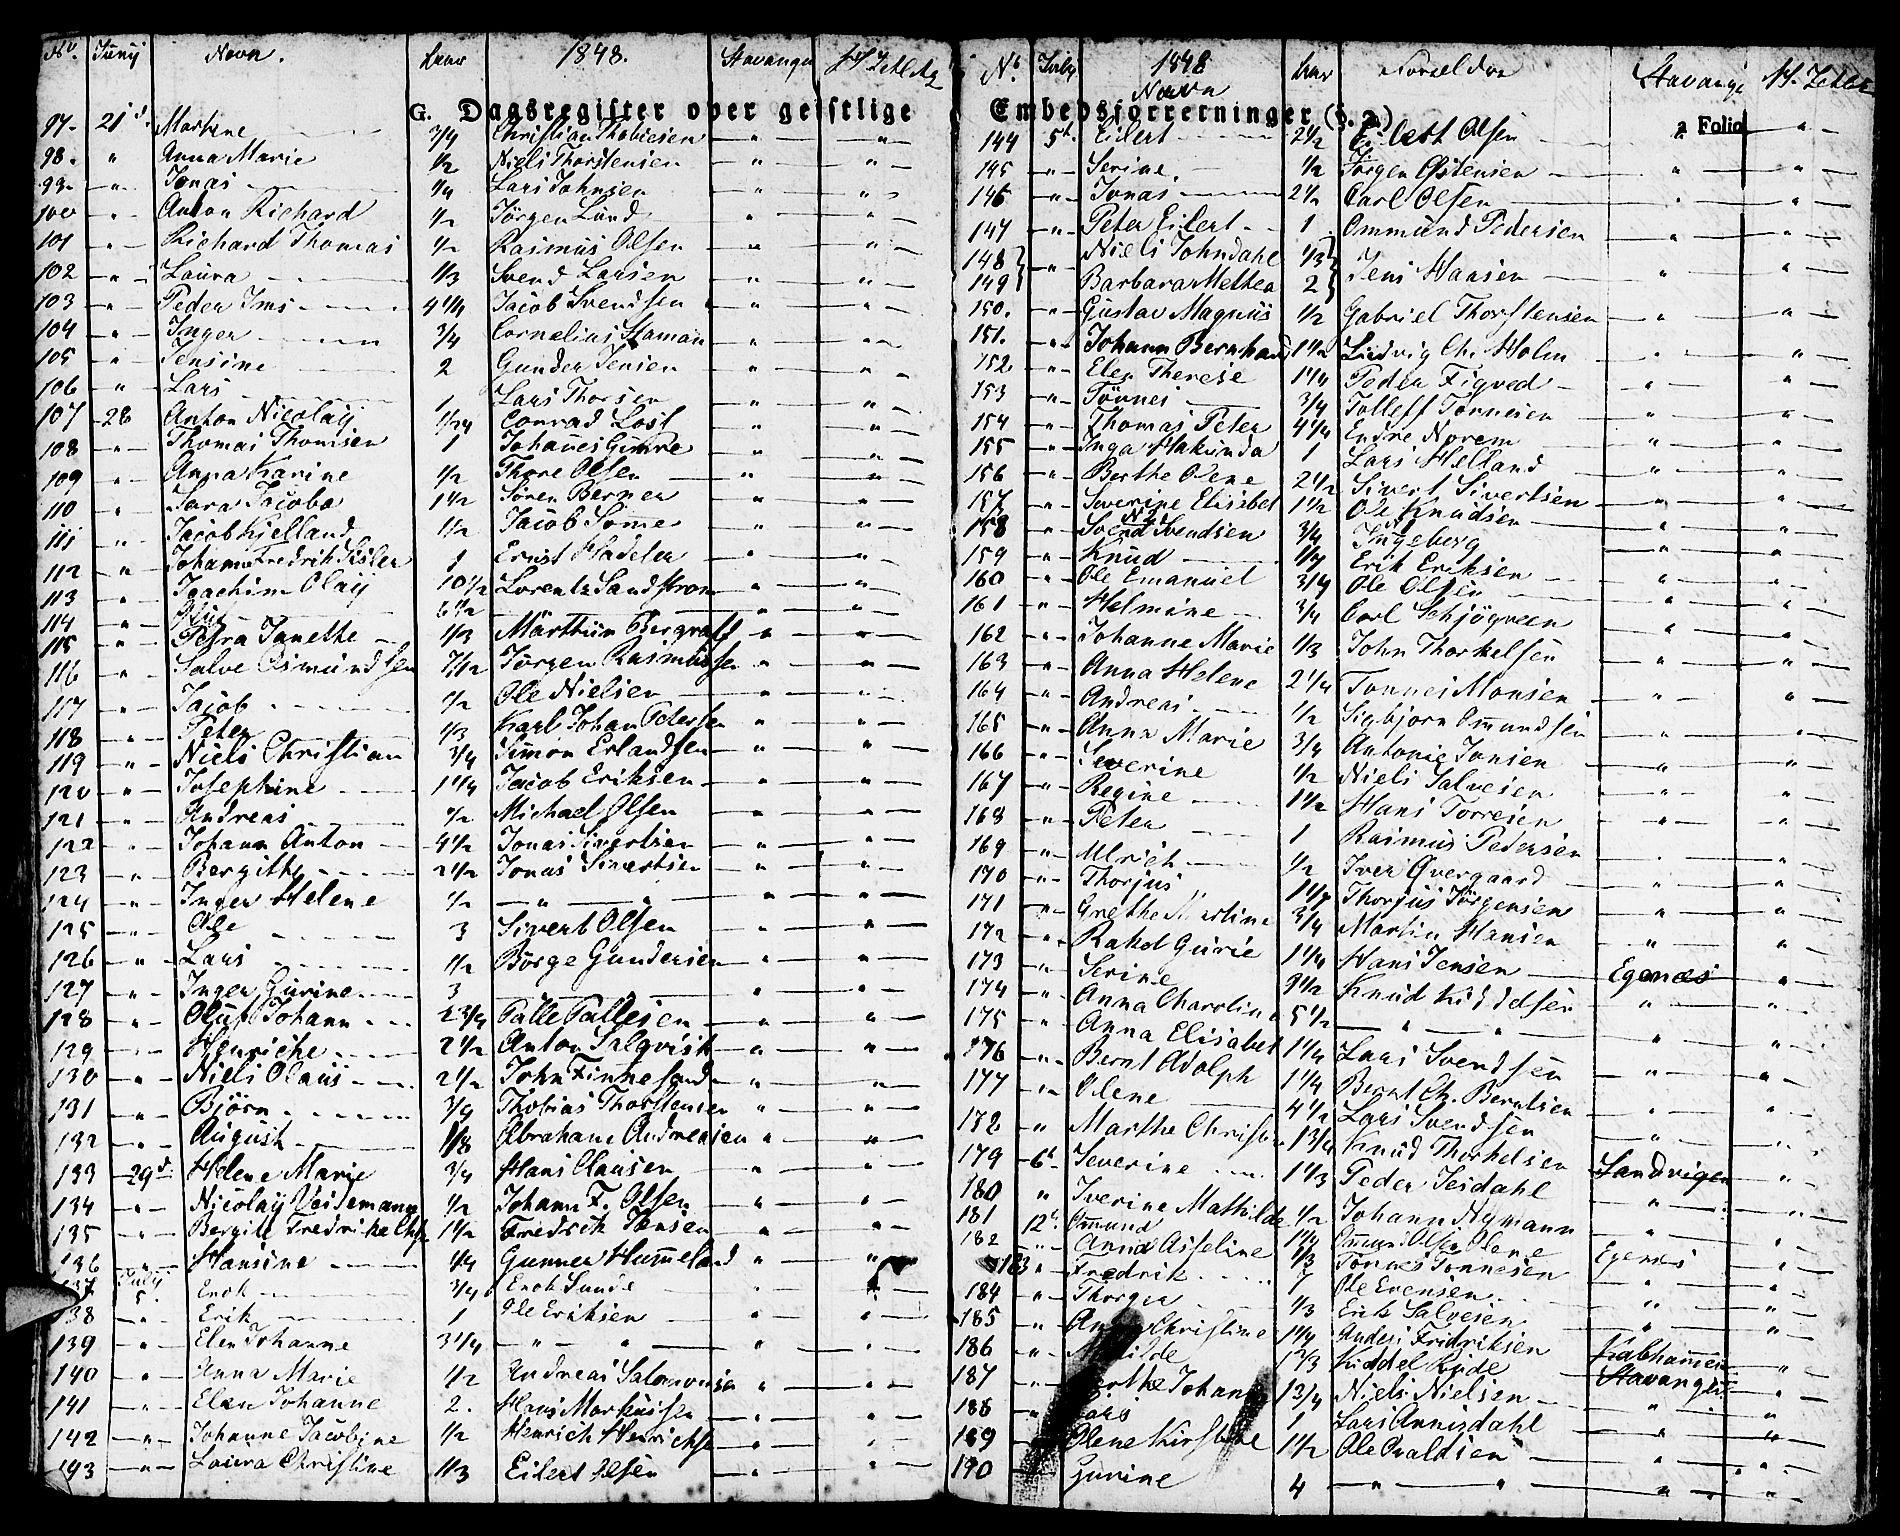 No. Junij Navn. Aar 1848. Stavanger
G. Dagsregister over geistlige
97. 21d. Martine 3/4 Christian Thobiesen " "
98. " Anna Marie 1/2 Niels Thorstensen " "
99. " Jonas 1/4 Lars Johnsen " "
100 " Anton Richard 1/2 Jörgen Lund " "
101 " Richard Thomas 1/2 Rasmus Olsen " "
102 " Laura 1/3 Svend Larsen " "
103 " Peder Ims 4 1/4 Jacob Svendsen " "
104 " Inger 3/4 Cornelius " "
105 " Jensine 2 Gunder Jensen " "
106 " Lars 1 Lars Thorsen " "
107 28 Anton Nicolaij Conrad Lost " "
108 " Thomas Thomsen 1 Johannes Gimre " "
109 " Anna Karine 1/2 Thore Olsen " "
110 " Sara Jacoba 1 1/2 Sören Berner " "
111 " Jacob Kjelland 1 1/2 Jacob Sömme " "
112 " Johann Fredrik 1 Ernst Hadeler " "
113 " Joachim Olaij 10 1/2 Lorentz Sandström " "
114 " 6 1/2 " "
115 " Petra Janette 1/3 " "
116 " Salve Osmundsen Jörgen Rasmussen " "
117 " Jacob 1/2 Ole Nielsen " "
118 " Peter 1/3 Karl Johan Petersen " "
119 " Niels Christian 3/4 Simon Erlandsen " "
120 " Josephine 1 1/4 Jacob Eriksen " "
121 " Andreas 1/2 Michael Olsen " "
122 " Johann Anton 4 1/2 Jonas Sivertsen " "
123 " Bergitha 2 1/2 Jonas Sivertsen " "
124 " Inger Helene 1/2 " " "
125 " Ole 3 Sivert Olsen " "
126 " Lars 1 1/2 Börge Gundersen " "
127 " Inger Gurine 3 " " "
128 " Oluf Johann 2 3/4 Palle Pallesen " "
129 " Henriche 2 1/2 Anton Salqvist " "
130 " Niels Olaus 2 1/2 John Finnesand " "
131 " Björn 3/4 Thobias Thorstensen " "
132 " August 1/8 Abraham Andreasen " "
133 29d. Helene Marie 3/4 Hans Clausen " "
134 " Nicolaij Veidemann 1/2 Johann F. Olsen " "
135 " Bergite Fredrike 1 1/2 Fredrik Jensen " "
136 " Hansine 1/4 Gunner Hummeland " "
137 Julij 5. Enok 3/4 Enok Sunde "
138 " Erik 1 Ole Eriksen " "
139 " Elen Johanne 3 1/4 " " " "
140 " Anna Marie 1/2 Andreas Salomonsen " "
141 " Elen Johanne 2. Hans Markussen " "
142 " Johanne Jacobine 1/2 Henrich Henrichsen " "
143 " Laura Christine 1/3 Eilert Olsen " "
No. Julij 1848 Navn Aar Forældre Stavanger
Embedsforretninger (§. 2)
a Folio
144 5t. Eilert 2 1/2 Eilert Olsen "
145 " Serine 1/2 Jörgen Östensen " "
146 " Jonas 2 1/2 Carl Olsen " "
147 " Peter Eilert 1 Ommund Pedersen " "
148 " Niels Johndahl 1/3 Jens Hansen " "
149 Barbara Methea 2
150. " Gustav Magnus 1/2 Gabriel Thorstensen " "
151. " Johann Bernhard 1 1/2 Ludvig Chr Holm " "
152 " Elen Therese 1 1/4 Peder Figved " "
153 " Tönnes 3/4 Tolleff Tönnesen " "
154 " Thomas Peter 4 1/4 Endre Norem " "
155 " Inga Hakunda 1 Lars Helland " "
156 " Berthe Olene 2 1/2 Sivert Sivertsen " "
157 " Severine Elisabet 1 1/2 Ole Knudsen " "
158 " Svend Svendsen 3/4 Ingeberg " "
159 " Knud 1/4 Erik Eriksen " "
160 " Ole Emanuel 3/4 Ole Olsen " "
161 " Helmine 3/4 Carl Schjögreen " "
162 " Johanne Marie 1/3 John Thorkelsen " "
163 " Anna Helene 2 1/4 Tönnes Monsen " "
164 " Andreas 1/2 Sigbjorn Ommundsen " "
165 " Anna Marie 3/4 Antonie Jonsen " "
166 " Severine 1/2 Niels Salvesen " "
167 " Regine 1 1/2 Hans Torresen " "
168 " Peter 1 Rasmus Pedersen " "
169 " Ulrich 1/2 Iver Qvergaard " "
170 " Thorjus 1 1/4 Thorjus Jörgensen " "
171 " Grethe Martine 3/4 Martin Hansen " "
172 " Rakel Gurie 1 1/4 Hans Jensen Egenæs "
173 " Serine 9 1/2 Knud " "
174 " Anna Charoline 5 1/2 " " " "
175 " Anna Elisabet 1 1/4 Lars Svendsen " "
176 " Bernt Adolph 1 1/4 Bernt Ch. Berntsen " "
177 " Olene 4 1/2 Lars Svendsen " "
178 " Marthe Christine 1 3/4 Knud Thorkelsen Sandvigen "
179 6t. Severine 1 1/3 Peder Seidahl " "
180 " Iverine Mathilde 1/2 Johann Nymann " "
181 12t. Ommund 1/4 Ommun Olsen Olene Egenes "
182 " Anna Asseline 1/3 Tönnes Tönnesen " "
183 " Fredrik 7 Ole Evensen " "
184 " Thorger 1/3 Erik Salvesen " "
185 " Anna Christine 1 1/4 Anders Fredriksen "
186 " 1 2/3 Kiddel Stavanger "
187 " Berthe Johanne 1 3/4 Niels Nielsen " "
188 " Lars 1 Lars Annisdahl " "
189 Olene Kirstine 1 1/2 Ole Oualdsen " "
190 Gurine 4 " " " "